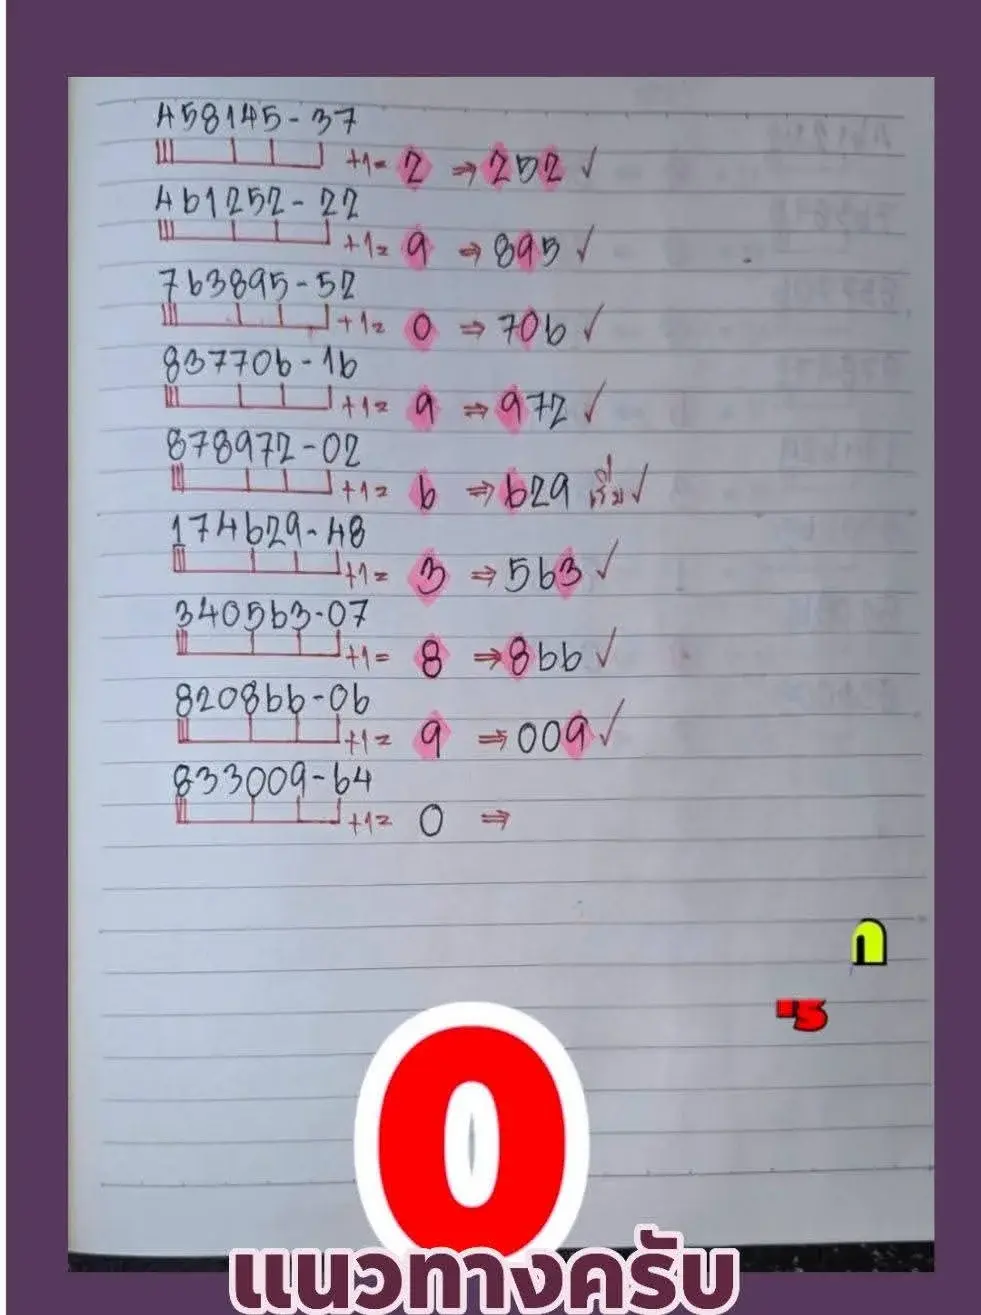 458145-37
+1= 2 ⇒ 252 ✓
461252-22
+1= 9 ⇒ 895 ✓
763895-52
+1= 0 ⇒ 706 ✓
837706-16
+1= 9 ⇒ 972 ✓
878972-02
+1= 6 ⇒ 629 เริ่ม ✓
174629-48
+1= 3 ⇒ 563 ✓
340563-07
+1= 8 ⇒ 866 ✓
820866-06
+1= 9 ⇒ 009 ✓
833009-64
+1= 0 ⇒
0
แนวทางครับ